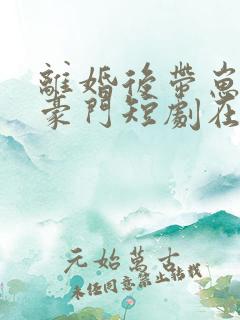 離婚後帶崽
豪門短劇在
元始萬古
未经同意禁止转载